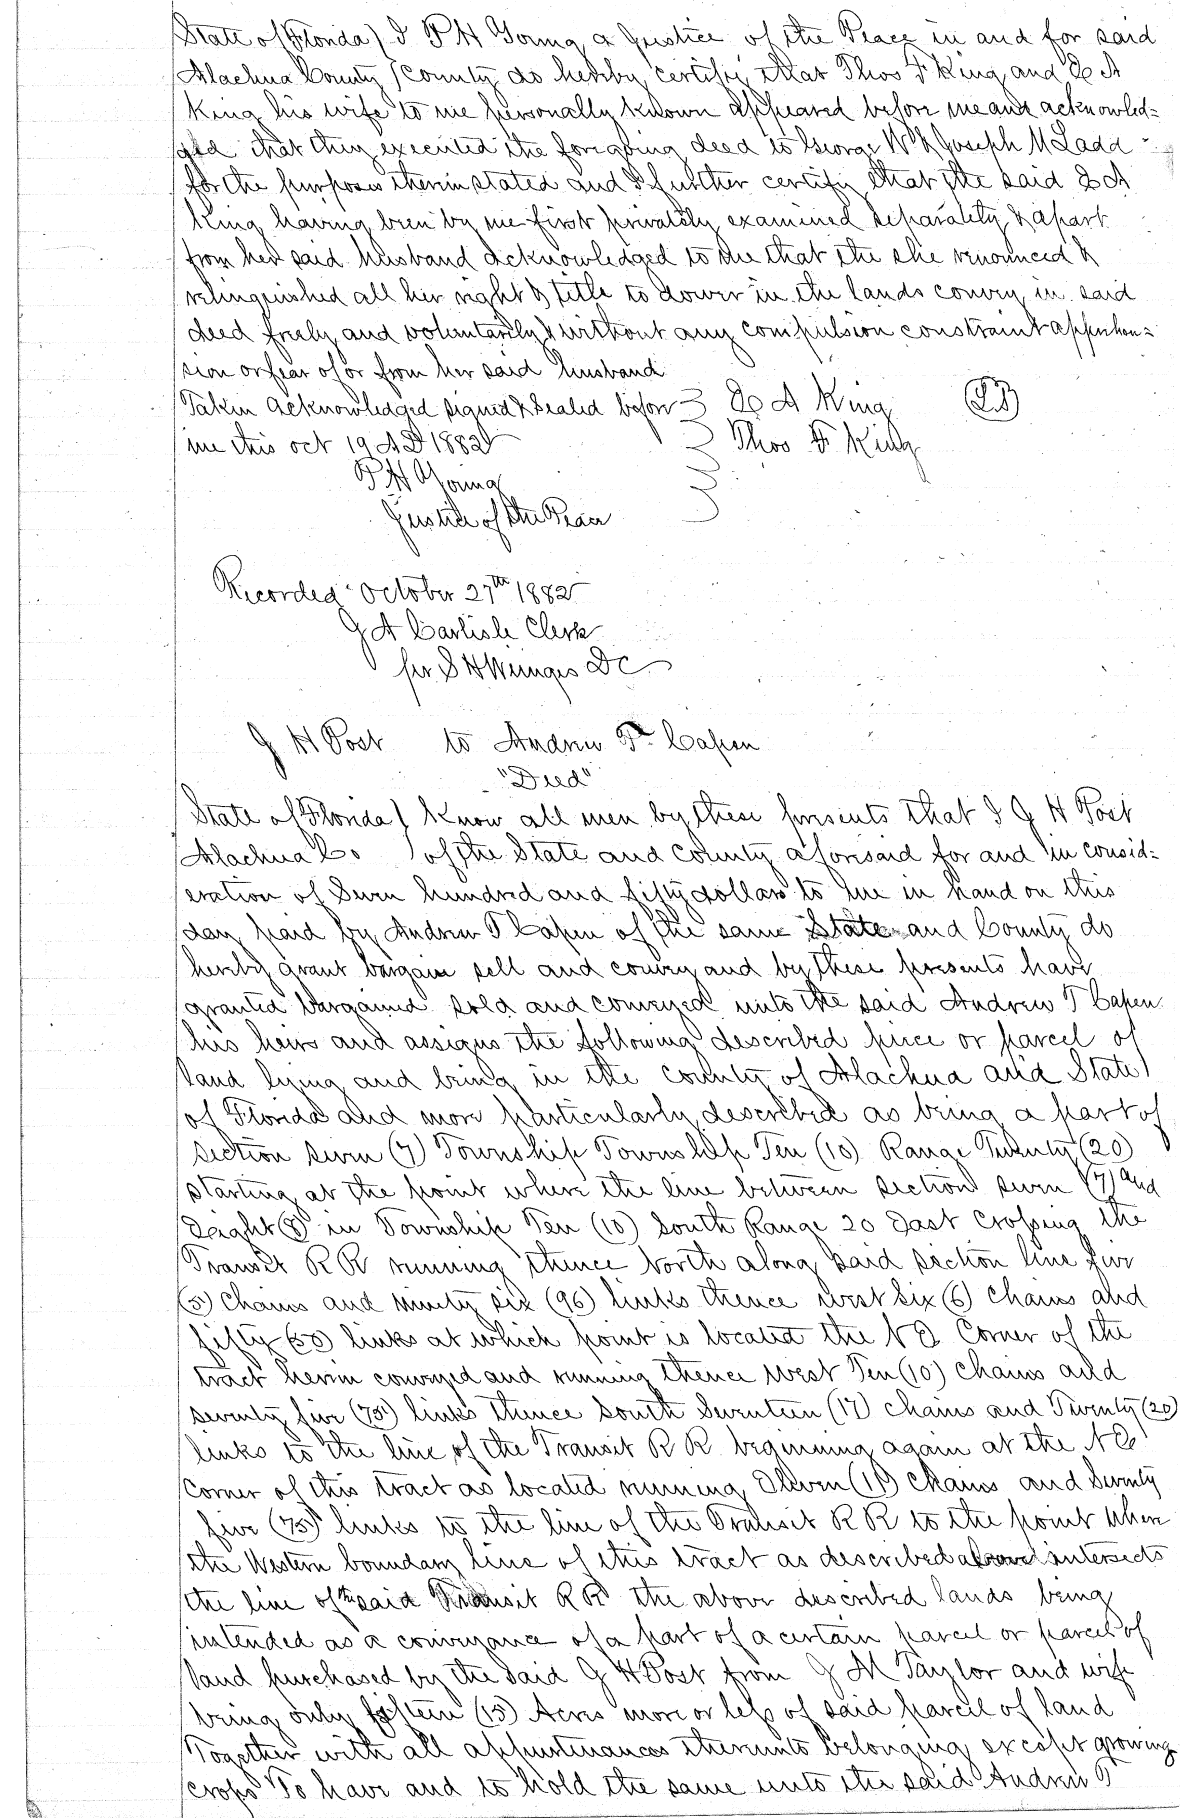 State of Florida) I P H Young a Justice of the Peace in and for said
Alachua County) County do hereby certify that Thos F King and E A
King his wife to me personally known appeared before me and acknowled=
ged that they executed the foregoing deed to George W & Joseph M Ladd
for the purposes therin stated and I further certify that the said E A
King having been by me first privately examined separately & apart
from her said husband acknowledged to me that the she renounced &
relinquished all her right & title to dower in the lands convey in said
deed freely and voluntarily & without any compulsion constraint apprehen=
sion or fear of or from her said husband
Taken acknowledged signed & sealed before } E A King (LS)
me this oct 19 A D 1882 } Thos F King
P H Young
Justice of the Peace
Recorded October 27th 1882
J A Carlisle Clerk
per S H Wienges DC
G H Post to Andrew T Capen
"Deed"
State of Florida) Know all men by these presents that I G H Post
Alachua Co ) of the State and County aforesaid for and in consid=
eration of Seven hundred and fifty dollars to me in hand on this
day paid by Andrew T Capen of the same State and County do
hereby grant bargain sell and convey and by these presents have
granted bargained sold and conveyed unto the said Andrew T Capen
his heirs and assigns the following described piece or parcel of
land lying and being in the County of Alachua and State
of Florida and more particularly described as being a part of
section seven (7) Township Township Ten (10) Range Twenty (20)
starting at the point where the line between section seven (7) and
Eight (8) in Township Ten (10) South Range 20 East crossing the
Transit R R running thence North along said section line five
(5) Chains and ninety six (96) links thence west six (6) chains and
fifty (50) links at which point is located the N E Corner of the
tract herein conveyed and running thence west Ten (10) chains and
seventy five (75) links thence South Seventeen (17) chains and Twenty (20)
links to the line of the Transit R R beginning again at the N E
corner of this tract as located running Eleven (11) chains and Seventy
five (75) links to the line of the Transit R R to the point where
the Western boundary line of this tract as described above intersects
the line of the said Transit R R the above described lands being
intended as a conveyance of a part of a certain parcel or parcel of
land purchased by the said G H Post from J M Taylor and wife
being only fifteen (15) Acres more or less of said parcel of land
Together with all appurtenances thereunto belonging except growing
crops To have and to hold the same unto the said Andrew T